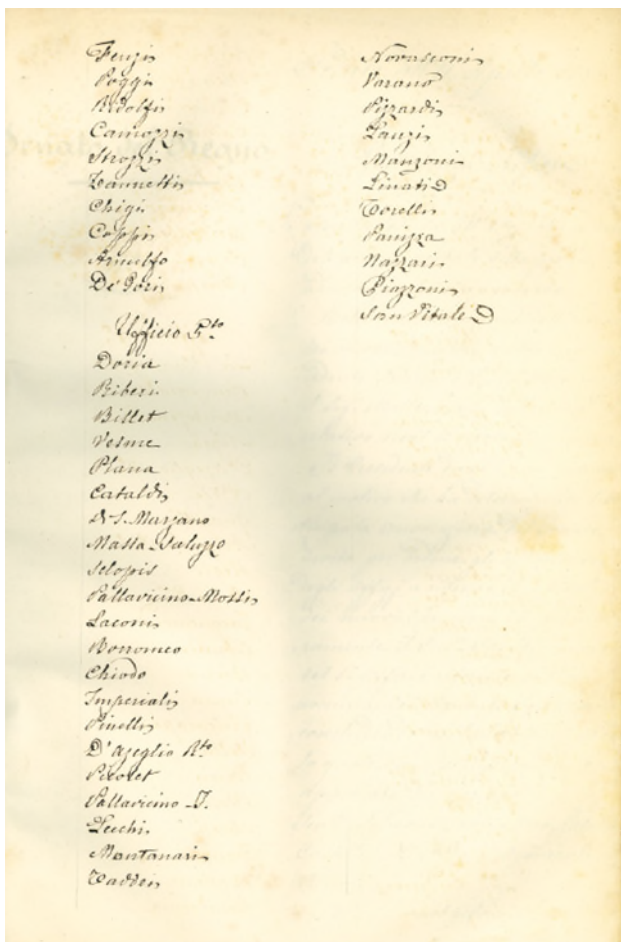 Fenzi
Poggi
Ridolfi
Camozzi
Strozzi
Zannetti
Chigi
Coppi
Arnulfo
De Gori
Ufficio 5.to
Doria
Riberi
Billet
Vesme
Plana
Cataldi
Di S. Marzano
Massa-Saluzzo
Sclopis
Pallavicino-Mossi
Laconi
Borromeo
Chiodo
Imperiali
Pinelli
D'Azeglio R.to
Picolet
Pallavicino-I.
Lechi
Montanari
Taddei
Novasconi
Varano
Pizzardi
Lauzi
Manzoni
Linati
Torelli
Panizza
Nazzari
Piazzoni
San Vitale